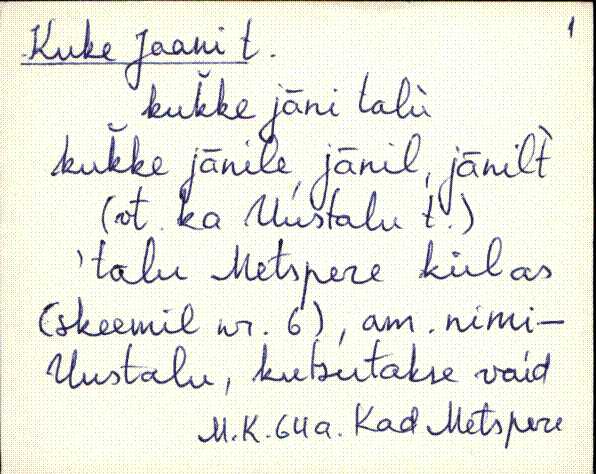 Kuke Jaani t.
1
kuk̆ke jāni talù
kuk̆ke jānile, jānil, jānilt̀
(vt. ka Uustalu t.)
'talu Metspere külas
(skeemil nr. 6), am. nimi-
Uustalu, kutsutakse vaid
M.K. 64a. Kad Metspere